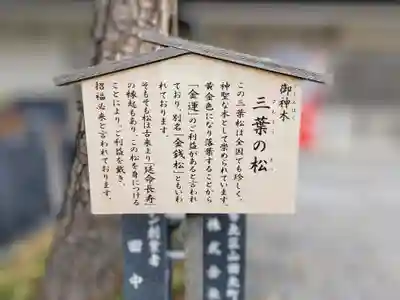 御神木
ごしんぼく
三葉の松
さんようのまつ
この三葉松は全国でも珍しく、
神聖な木として崇められています。
黄金色になり落葉することから
「金運」のご利益があると言われ
ており、別名「金銭松」ともいわ
れております。
そもそも松は古来より「延命長寿」
の縁起もあり、この松を身につける
ことにより、ご利益を戴き、
招福必来と言われております。
株式会
創業者
田中